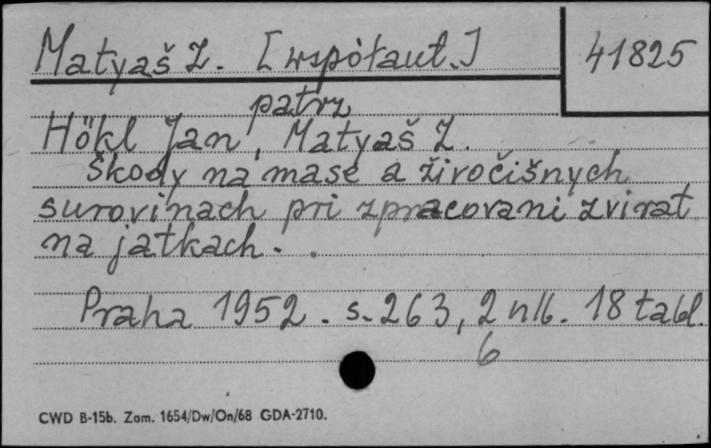 Matyaš Z. [współaut.]
41825
patrz
Hökl Jan, Matyaš Z.
Škody na mase a živočišnych
surovinach pri zpracovani zvirat
na jatkach.
Praha 1952. s. 263, 2 nlb. 18 tabl.
6
CWD B-15b. Zam. 1654/Dw/On/68 GDA-2710.